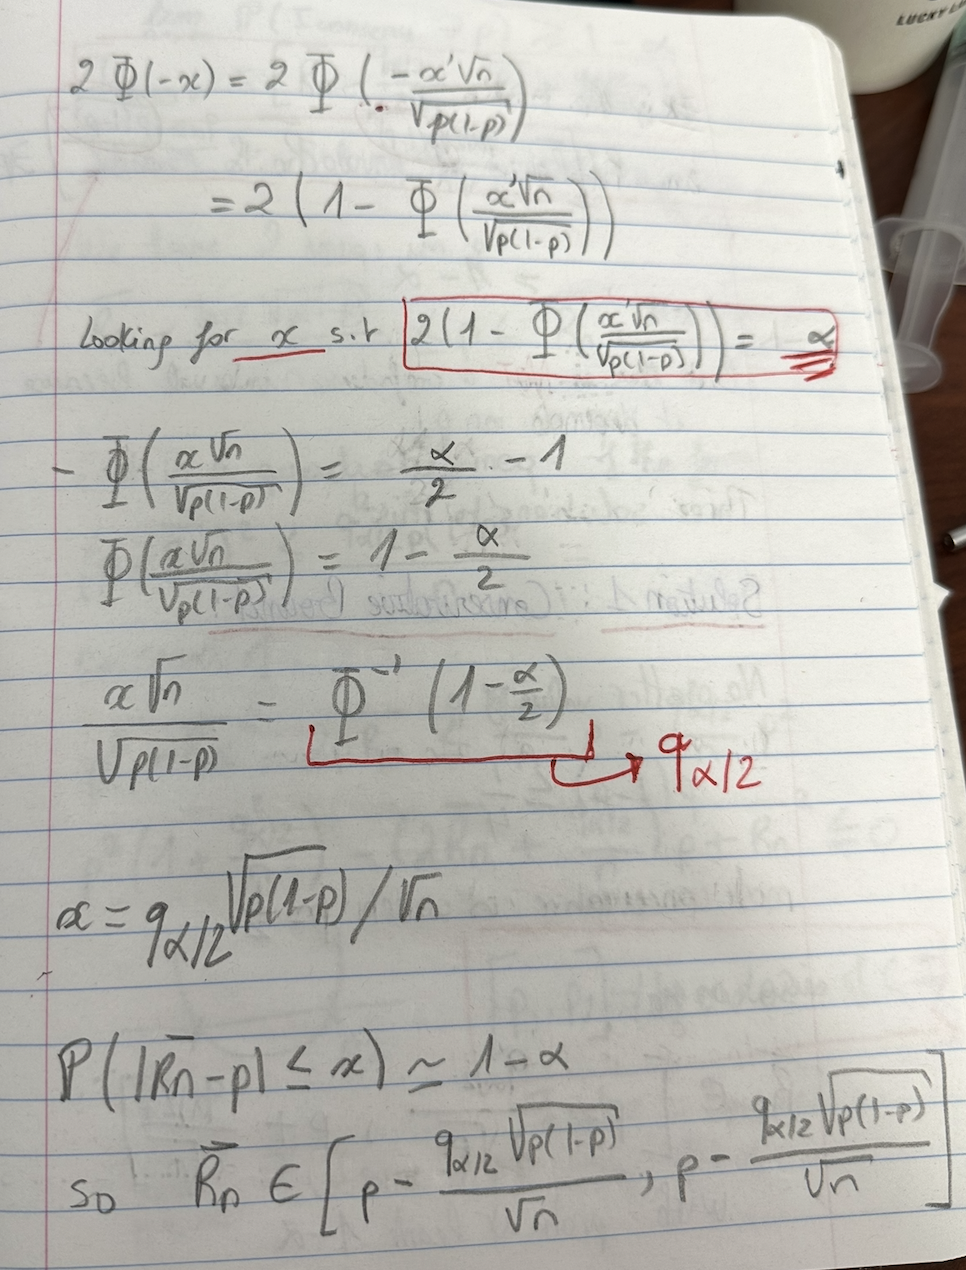 2 Φ(-x) = 2 Φ (-x√n / √p(1-p))
= 2 (1 - Φ (x√n / √p(1-p)))
Looking for x s.t 2(1 - Φ (x√n / √p(1-p))) = α
- Φ (x√n / √p(1-p)) = α/2 - 1
Φ (x√n / √p(1-p)) = 1 - α/2
x√n / √p(1-p) = Φ⁻¹ (1 - α/2)
q_α/2
x = q_α/2 √p(1-p) / √n
P(|R̄n - p| ≤ x) ≃ 1 - α
so R̄n ∈ [p - q_α/2 √p(1-p) / √n , p - q_α/2 √p(1-p) / √n]
LUCKY